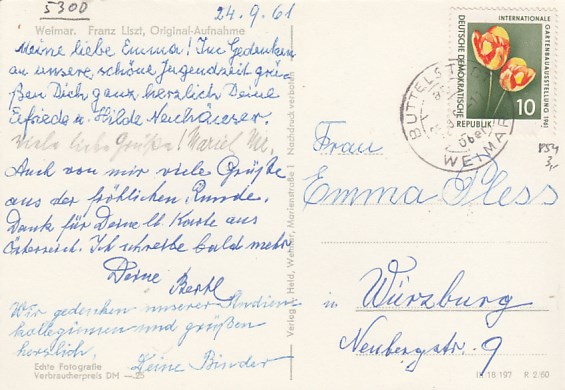 5300
24.9.61
Weimar. Franz Liszt, Original-Aufnahme
Meine liebe Emma! Im Gedenken
an unsere schöne Jugendzeit grü-
ßen Dich ganz herzlich Deine
Elfrieda u. Hilde Neuhäuser.
Viele liebe Grüße!
Auch von mir viele Grüße
aus der fröhlichen Runde.
Dank für Deine lb. Karte aus
Österreich. Ich schreibe bald mehr
Deine Bertl
Wir gedenken unserer Studien-
kolleginnen und grüßen
herzlich.
Deine Binder
Echte Fotografie
Verbraucherpreis DM —.25
Verlag Held, Weimar, Marienstraße 1 Nachdruck verboten
INTERNATIONALE
GARTENBAUAUSSTELLUNG 1961
DEUTSCHE DEMOKRATISCHE
REPUBLIK
10
BUTTELST
über
WEIMAR
Frau
Emma Pless
in Würzburg
Neubergstr. 9
18 197 R 2/60